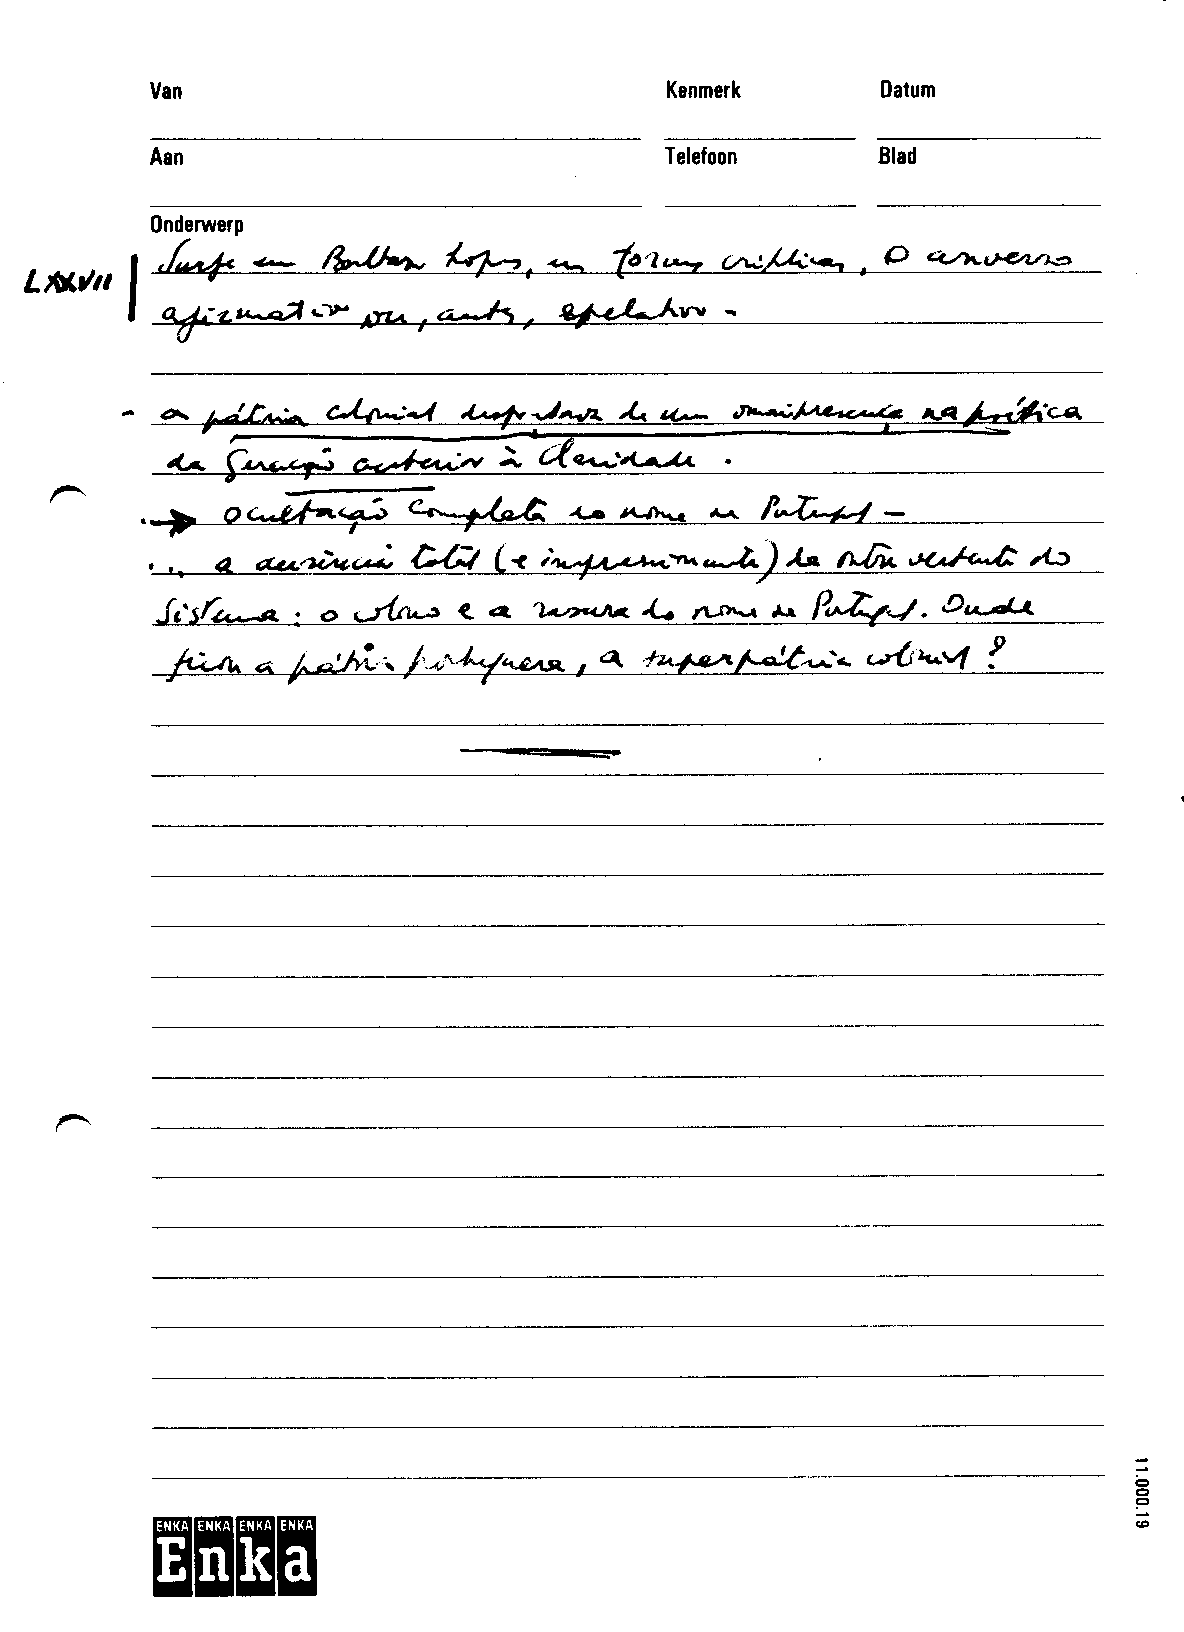 Van Kenmerk Datum
Aan Telefoon Blad
Onderwerp
LXXVII Surge em Baltasar Lopes, em formas crípticas, o anverso
afirmativo ou, antes, apelativo -
- a pátria colonial desfrutava de uma omnipresença na poética
da geração anterior à Claridade.
→ ocultação completa do nome de Portugal -
... a ausência total (e impressionante) da outra vertente do
sistema: o colono e a rasura do nome de Portugal. Onde
ficou a pátria portuguesa, a superpátria colonial?
11.000.19
ENKA ENKA ENKA ENKA
Enka